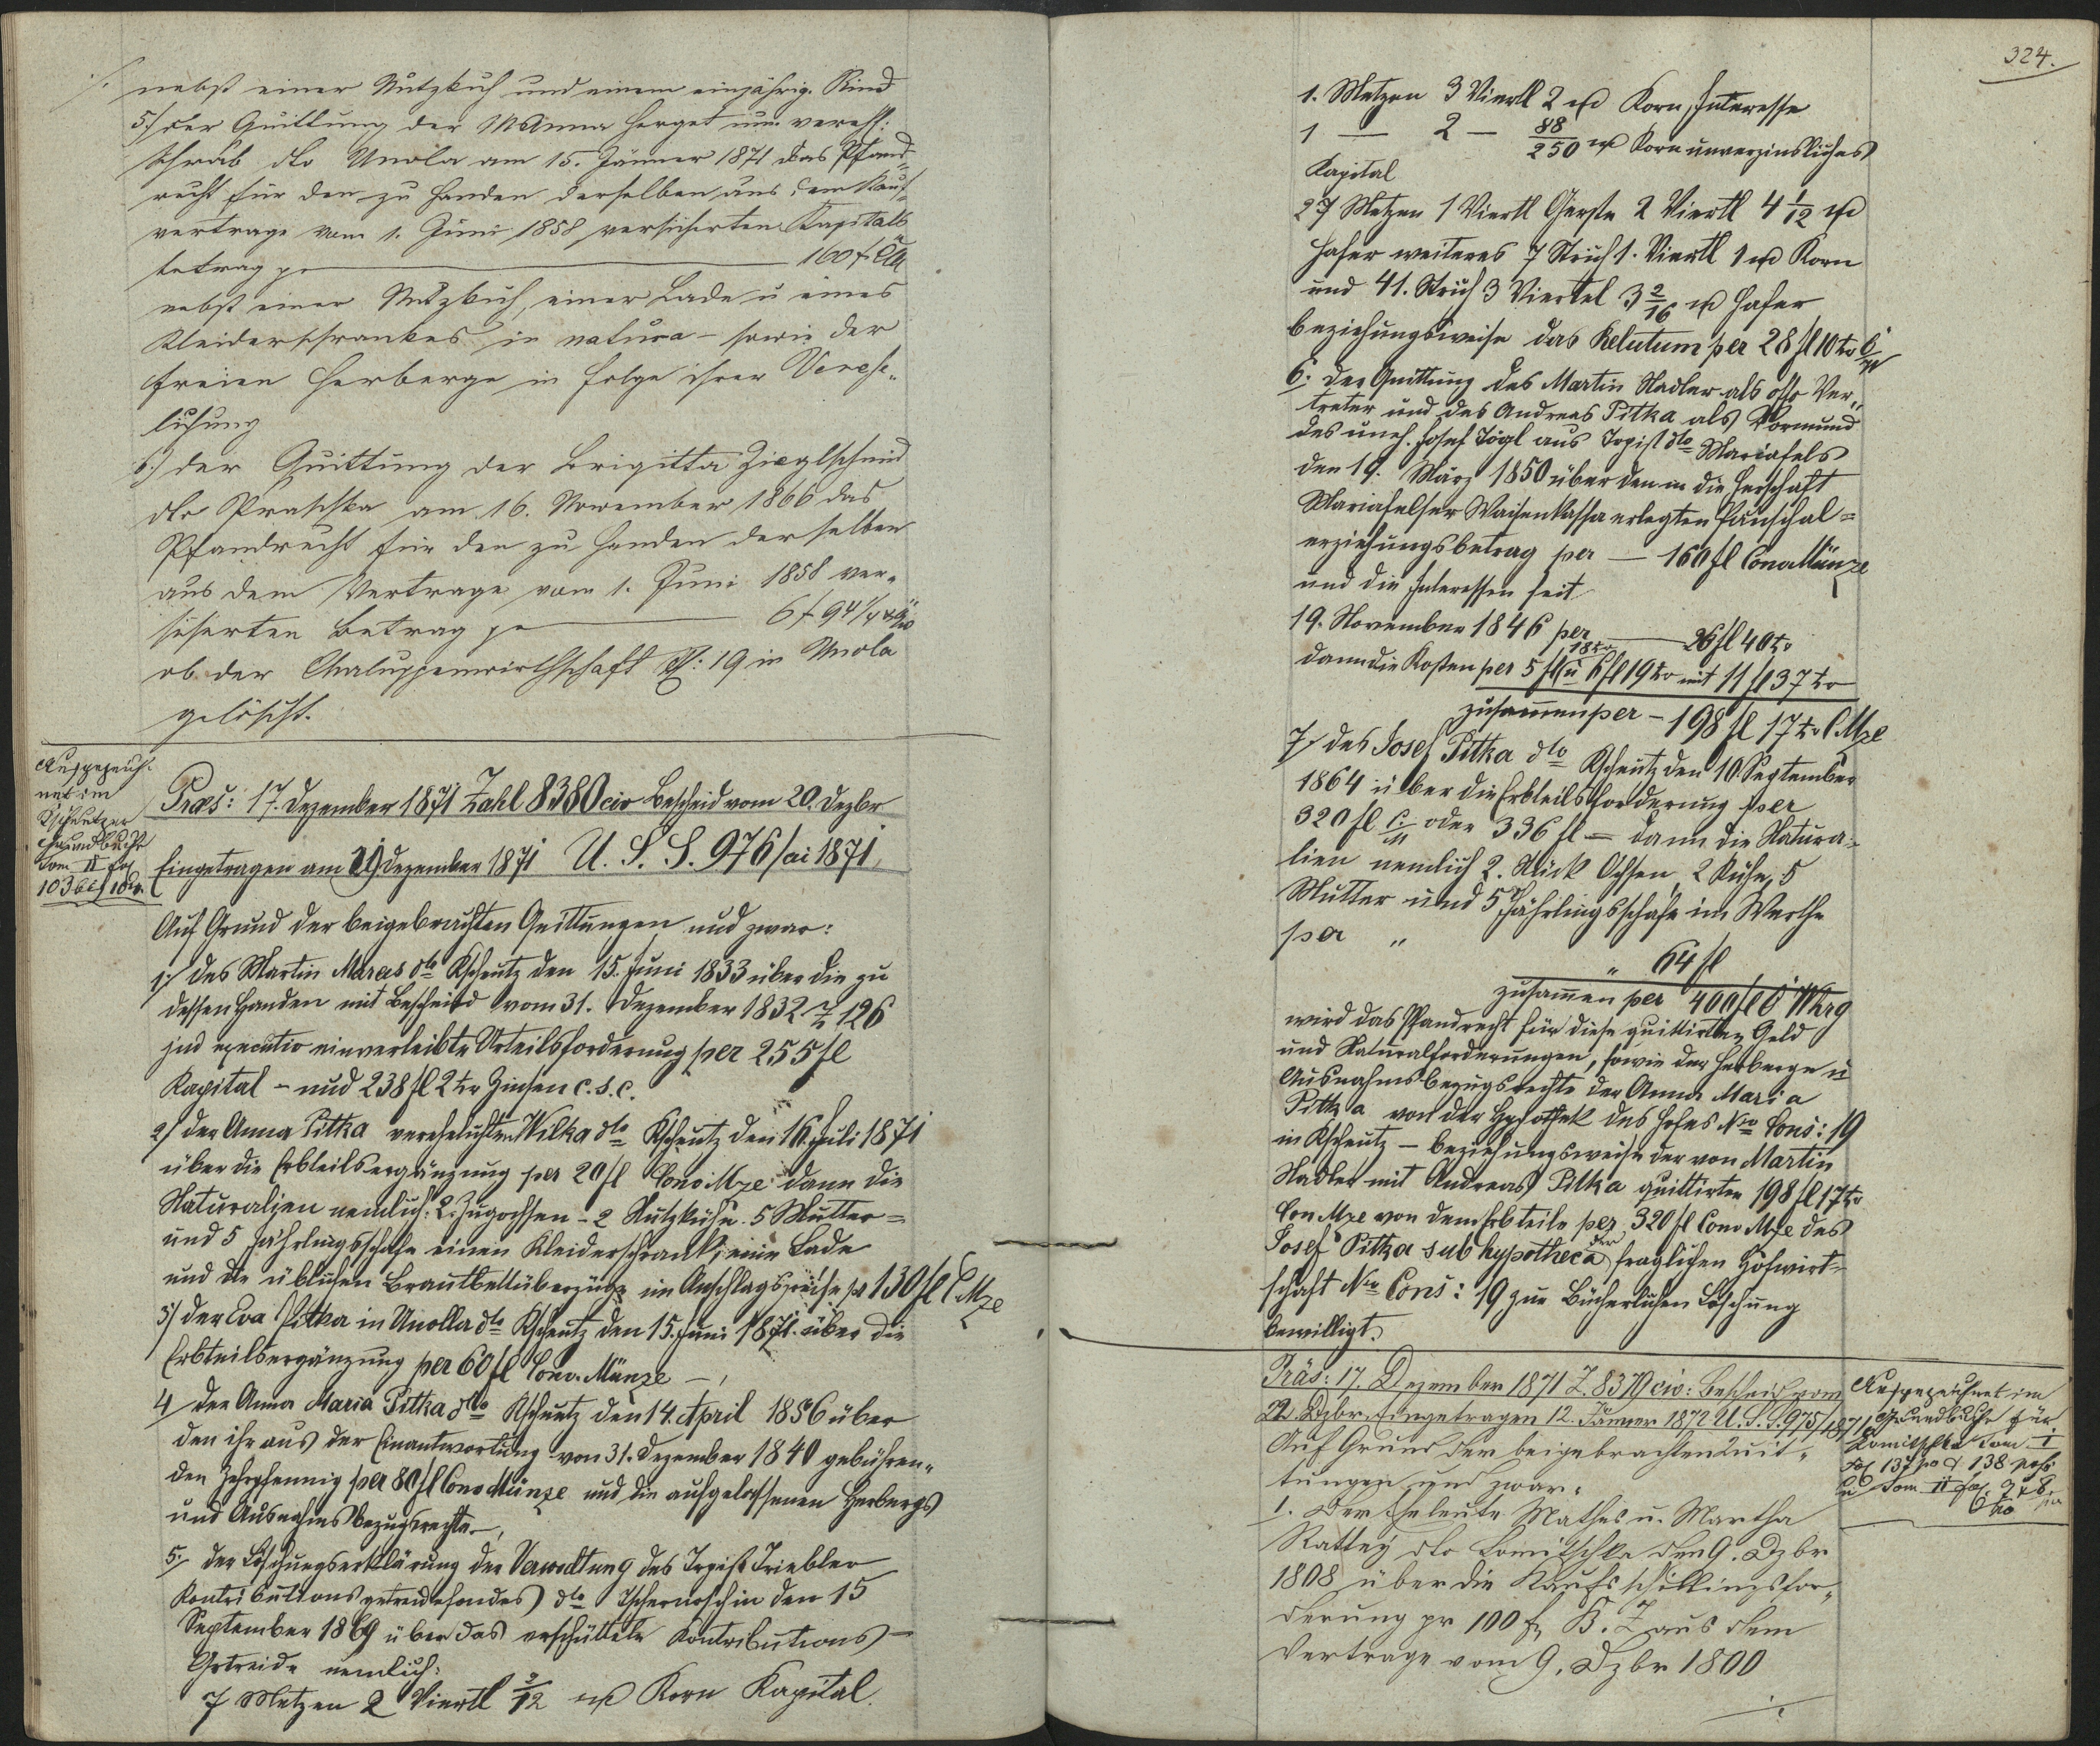 ./.
nebst einer Nutzkuh und einem einjährig. Rind
5./ der Quittung der M Anna Herget nun vereh:
Schrab dto Unola am 15. Jänner 1871 das Pfand-
recht für den zu Handen derselben aus dem Kauf-
vertrage vom 1. Juni 1858 versicherten Kapitals
betrag pr 160 f CM
nebst einer Nutzkuh, einer Lade u eines
Kleiderschrankes in natura - sowie der
freien Herberge in Folge ihrer Vereh-
lichung
6./ der Quittung der Brigitta Zieglschmid
dto Praschka am 16. November 1866 das
Pfandrecht für den zu Handen derselben
aus dem Vertrage vom 1. Juni 1858 ver-
sicherten Betrag pr 6 f 94 1/4 x
ob der Chaluppenwirthschaft N: 19 in Unola
gelöscht.
Ausgezeich-
net im
Kscheutzer
Grundbuch
Tom II fol
103
Præs: 17. Dezember 1871 Zahl 8380 civ Bescheid vom 20. Dezbr
Eingetragen am 29 Dezember 1871 U. S. S. 976/ai 1871
Auf Grund der beigebrachten Quittungen und zwar:
1./ des Martin Maras dto Kscheutz den 15. Juni 1833 über die zu
dessen Handen mit Bescheid vom 31. Dezember 1832 Z 126
executiv einverleibte Urteilsforderung per 255 fl
Kapital - und 238 fl 2 xr Zinsen c. s. c.
2/ der Anna Pitka verehelichten Wilka dto Kscheutz den 16. Juli 1871
über die Erbteilsergänzung per 20 fl Conv Mze dann die
Naturalien nemlich: 2 Zugochsen - 2 Nutzkühe 5 Mutter-
und 5 Jährlingsschafe einen Kleiderschrank, eine Lade
und die üblichen Brautbettüberzüge im Anschlagspreise pr 130 fl C Mze
3/ der Eva Pitka in Unolla dto Kscheutz den 15. Juni 1871 über die
Erbteilsergänzung per 60 fl Conv. Münze -,
4/ der Anna Maria Pitka dto Kscheutz den 14. April 1856 über
den ihr aus der Einantwortung vom 31. Dezember 1840 gebühren-
den Zehrpfennig per 80 fl Conv Münze und die aufgelassenen Herbergs
und Ausnahmsbezugsrechte -,
5./ der Löschungserklärung der Verwaltung des Tepist Triebler
Kontributionsgetreidefondes dto Tschernoschin den 15
September 1869 über das verschüttete Kontributions-
Getreide nemlich:
7 Metzen 2 Viertl 3/12 Korn Kapital.
324.
1. Metzen 3 Viertl 2 Korn, Interesse
1 — 2 — 88/250 Korn unverzinsliches
Kapital
27 Metzen 1 Viertl Gerste 2 Viertl 4 1/12
Hafer weiteres 7 Strich 1. Viertl 1 Korn
und 41. Strich 3 Viertel 3 2/16 Hafer
beziehungsweise das Relutum per 28 fl 10 xr C/M
6./ der Quittung des Martin Stadler als off. Ver-
treter und des Andreas Pitka als Vormund
des uneh. Josef Tögl aus Tepist dto Mariafels
den 19. März 1850 über den in die Herrschaft
Mariafelser Waisenkassa erlegten Pauschal=
erziehungsbetrag per — 160 fl Conv Münze
und die Interessen seit
19. November 1846 per — 26 fl 40 xr
dann die Kosten per 5 fl 18 xr u 6 fl 19 xr mit 11 fl 37 xr
zusammen per - 198 fl 17 xr C Mze
7/ des Josef Pitka dto Kscheutz den 10. September
1864 über die Erbteilsforderung per
320 fl C/M oder 336 fl — dann die Natura-
lien nemlich 2. Stück Ochsen, 2 Kühe, 5
Mutter und 5 Jährlingsschafe im Werthe
per „
„ 64 fl
zusammen per 400 fl Ö Whrg
wird das Pfandrecht für diese quittirten Geld
und Naturalforderungen, sowie der Herberge u
Ausnahmsbezugsrechte der Anna Maria
Pitka von der Hypothek des Hofes Nro Cons: 19
in Kscheutz - beziehungsweise der von Martin
Stadler mit Andreas Pitka quittirten 198 fl 17 xr
Con Mze von dem Erbteile per 320 fl Conv Mze des
Josef Pitka sub hypotheca der fraglichen Hofwirt-
schaft Nro Cons: 19 zur Bücherlichen Löschung
bewilligt.
Präs: 17. Dezember 1871 Z. 8379 civ: Bescheid vom
22. Dzbr. Eingetragen 12. Jänner 1872 U. S. S. 975/1871
Auf Grund der beigebrachten Quit-
tungen und zwar.
1. Der Eheleute Mathes u. Martha
Rattey dto Lomitschka den 9. Dzbr
1808 über die Kaufschillingsfor-
derung pr 100 f B. Z aus dem
Vertrage vom 9. Dzbr 1800
./.
Ausgezeichnet im
Grundbuche für
Lomitschka Tom I
Fol 137 po & 138
Tom II fol. 7 & 8